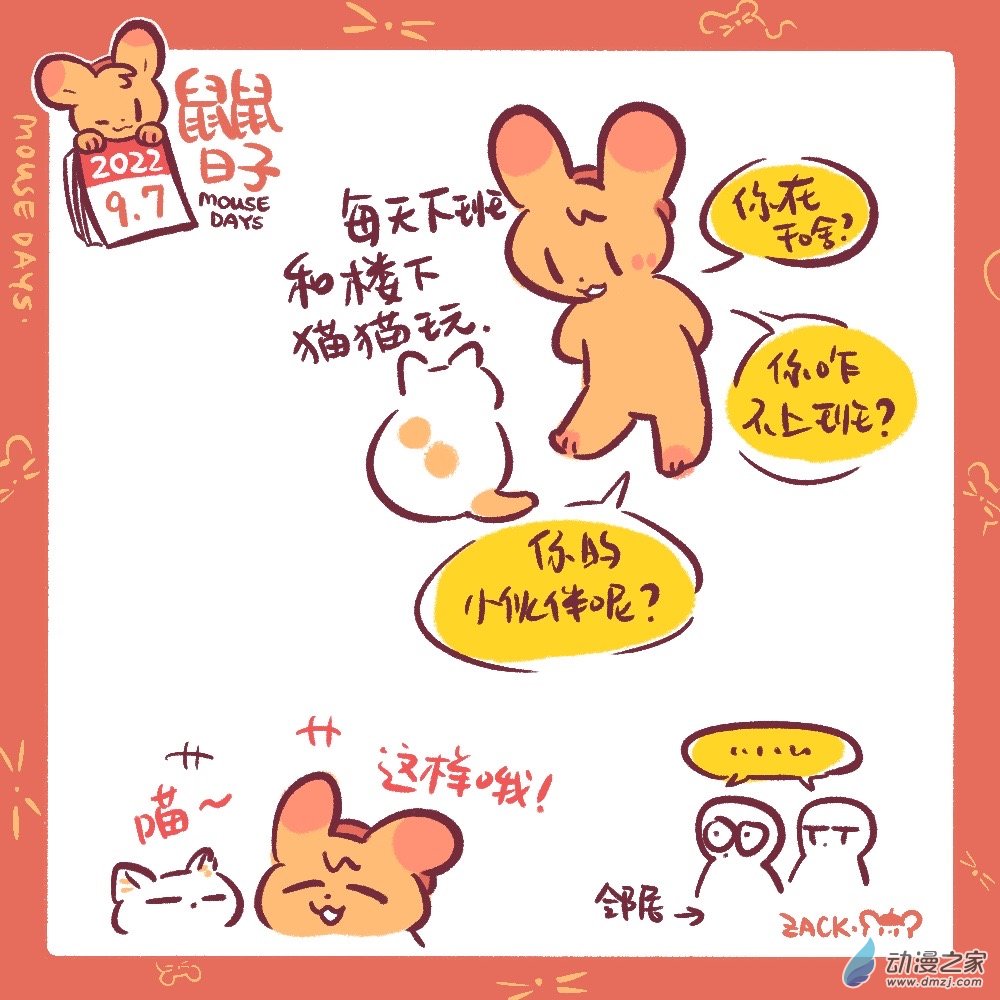 鼠鼠
日子
MOUSE
DAYS
2022
9.7
MOUSE DAYS.
每天下班
和楼下
猫猫玩.
你在
干啥?
你咋
不上班?
你的
小伙伴呢?
喵～
这样哦!
.....
邻居→
ZACK.
动漫之家
www.dmzj.com